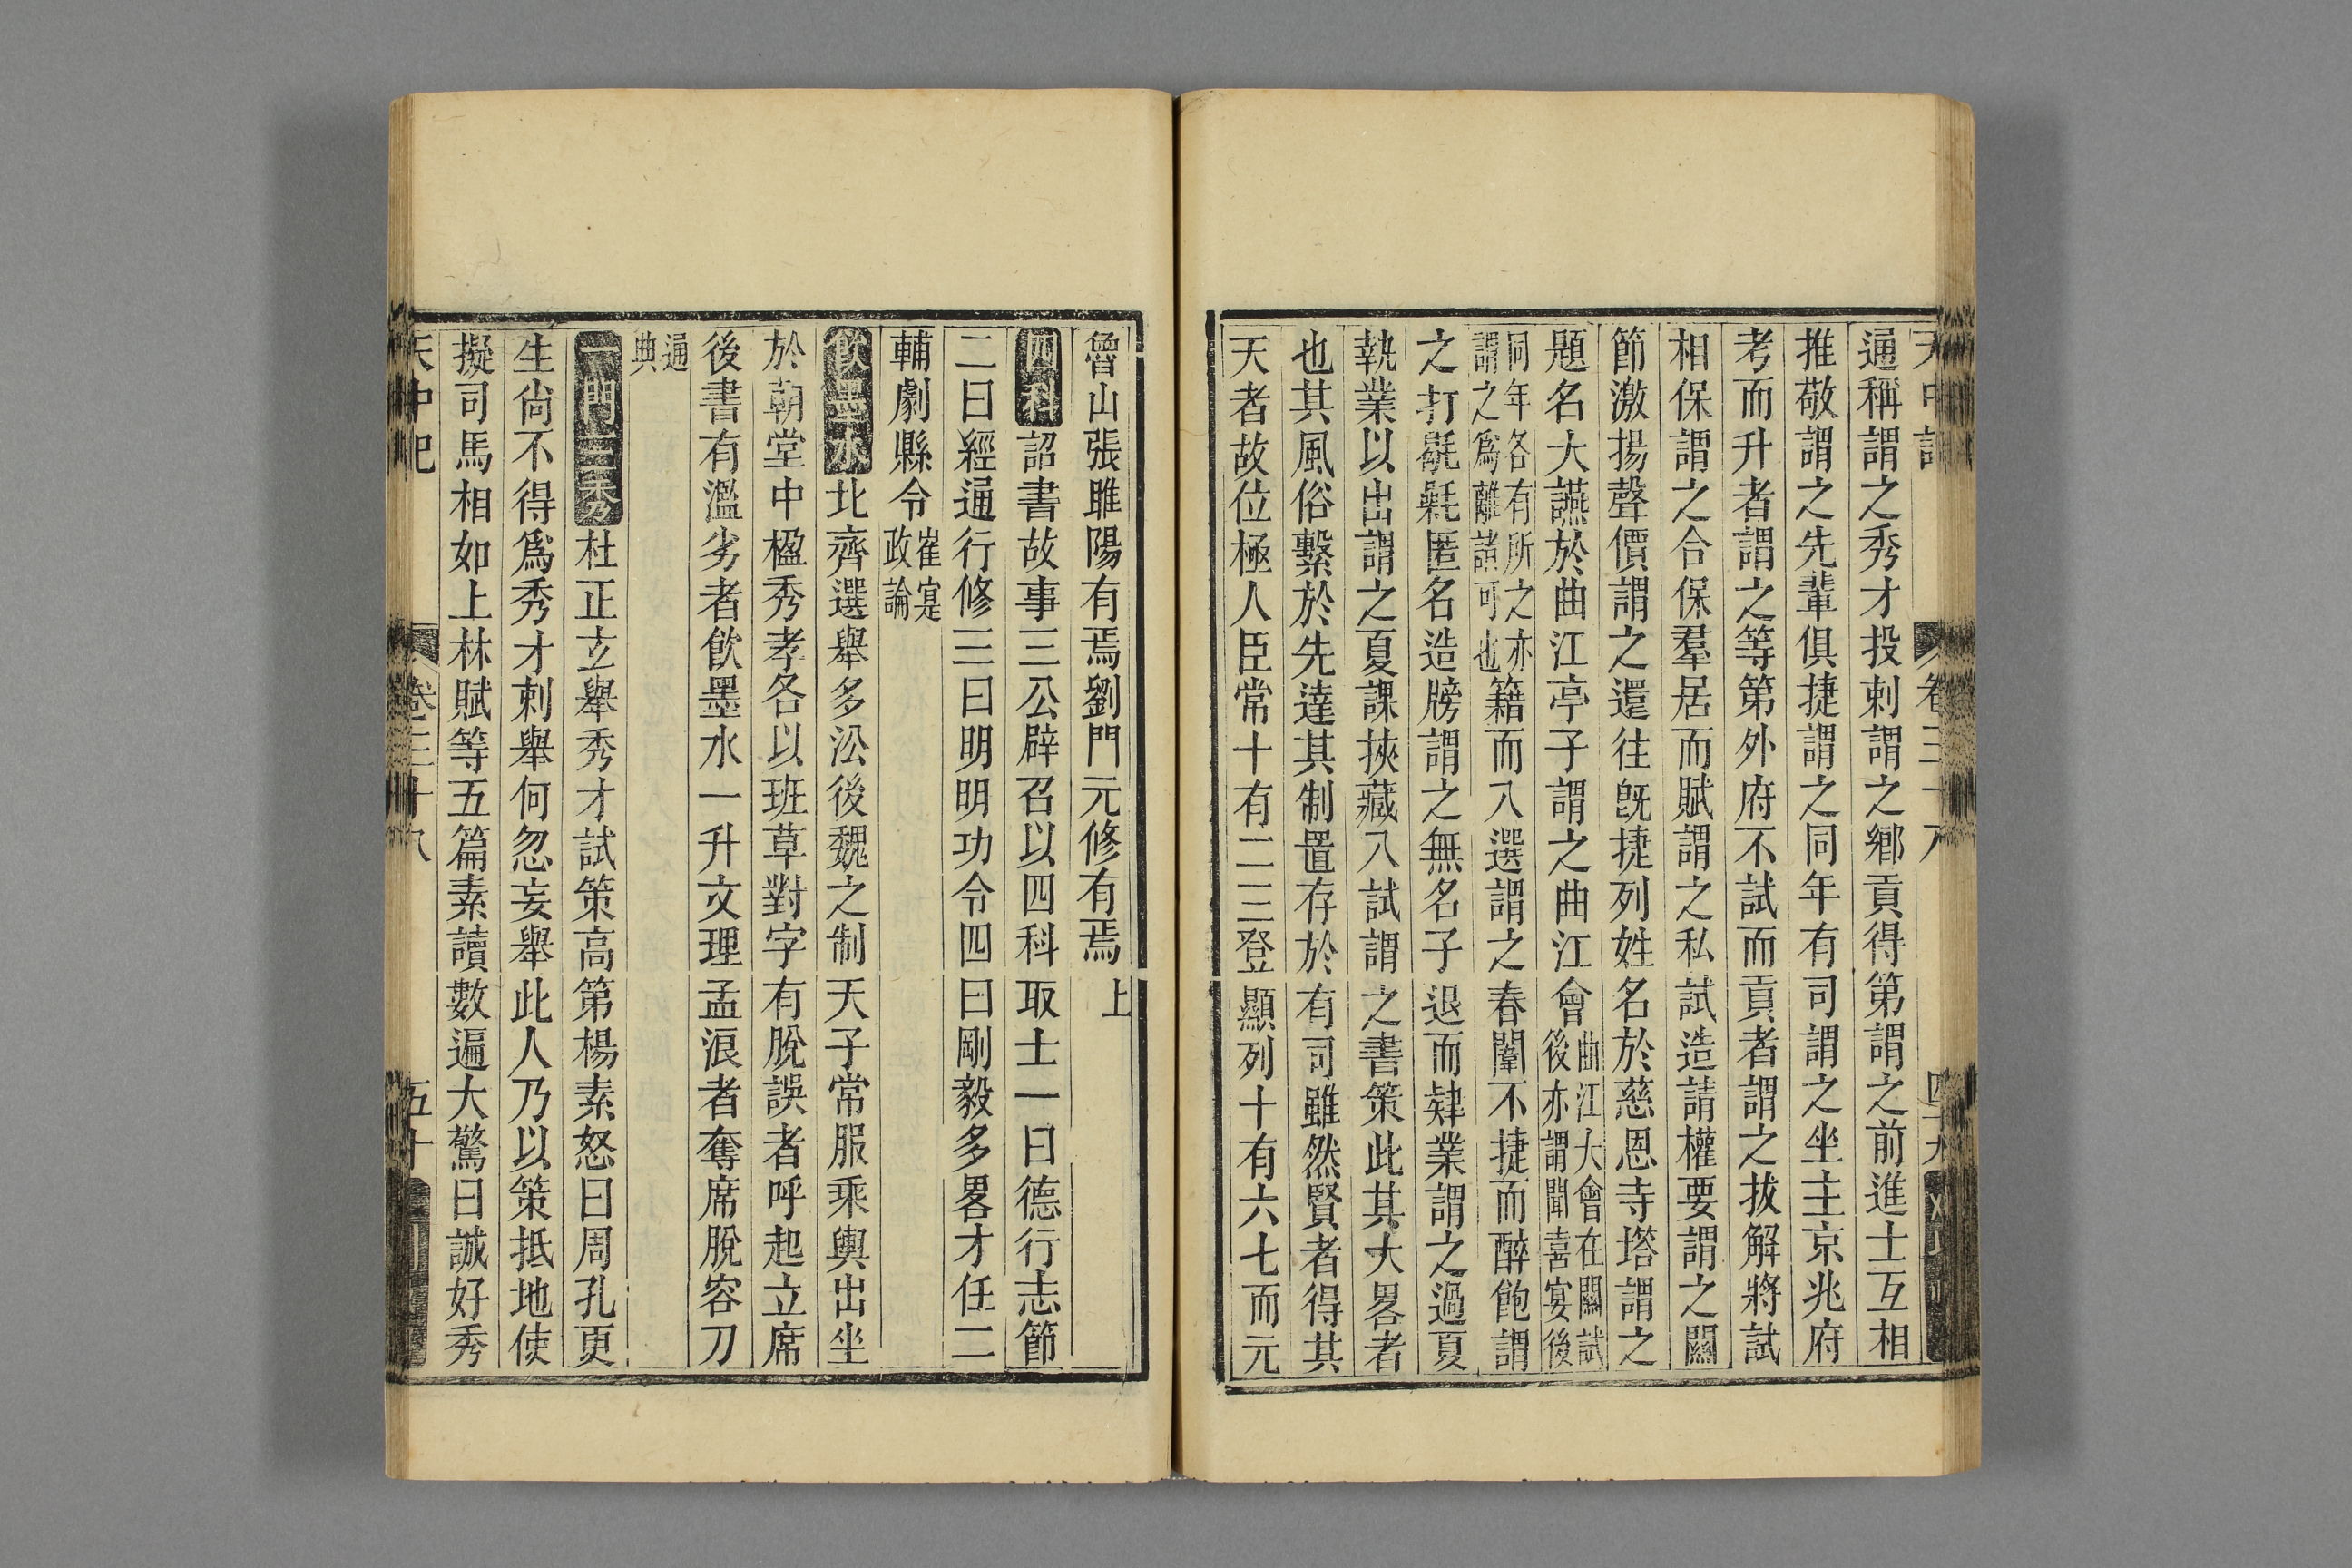 天中記 卷三十八 四十九
通稱謂之秀才投刺謂之鄉貢得第謂之前進士互相
推敬謂之先輩俱捷謂之同年有司謂之坐主京兆府
考而升者謂之等第外府不試而貢者謂之拔解將試
相保謂之合保羣居而賦謂之私試造請權要謂之關
節激揚聲價謂之還往旣捷列姓名於慈恩寺塔謂之
題名大讌於曲江亭子謂之曲江會曲江大會在關試後亦謂聞喜宴後
同年各有所之亦謂之爲離諸可也籍而入選謂之春闈不捷而醉飽謂
之打毷氉匿名造牓謂之無名子退而肄業謂之過夏
執業以出謂之夏課挾藏入試謂之書策此其大畧者
也其風俗繫於先達其制置存於有司雖然賢者得其
天者故位極人臣常十有二三登顯列十有六七而元
魯山張雎陽有焉劉門元修有焉上
四科詔書故事三公辟召以四科取士一曰德行志節
二曰經通行修三曰明明功令四曰剛毅多畧才任二
輔劇縣令崔寔政論
飲墨水北齊選舉多沿後魏之制天子常服乘輿出坐
於朝堂中楹秀孝各以班草對字有脫誤者呼起立席
後書有濫劣者飲墨水一升文理孟浪者奪席脫容刀
通典
一門三秀杜正玄舉秀才試策高第楊素怒曰周孔更
生尙不得爲秀才刺舉何忽妄舉此人乃以策抵地使
擬司馬相如上林賦等五篇素讀數遍大驚曰誠好秀
天中記 卷三十八 五十